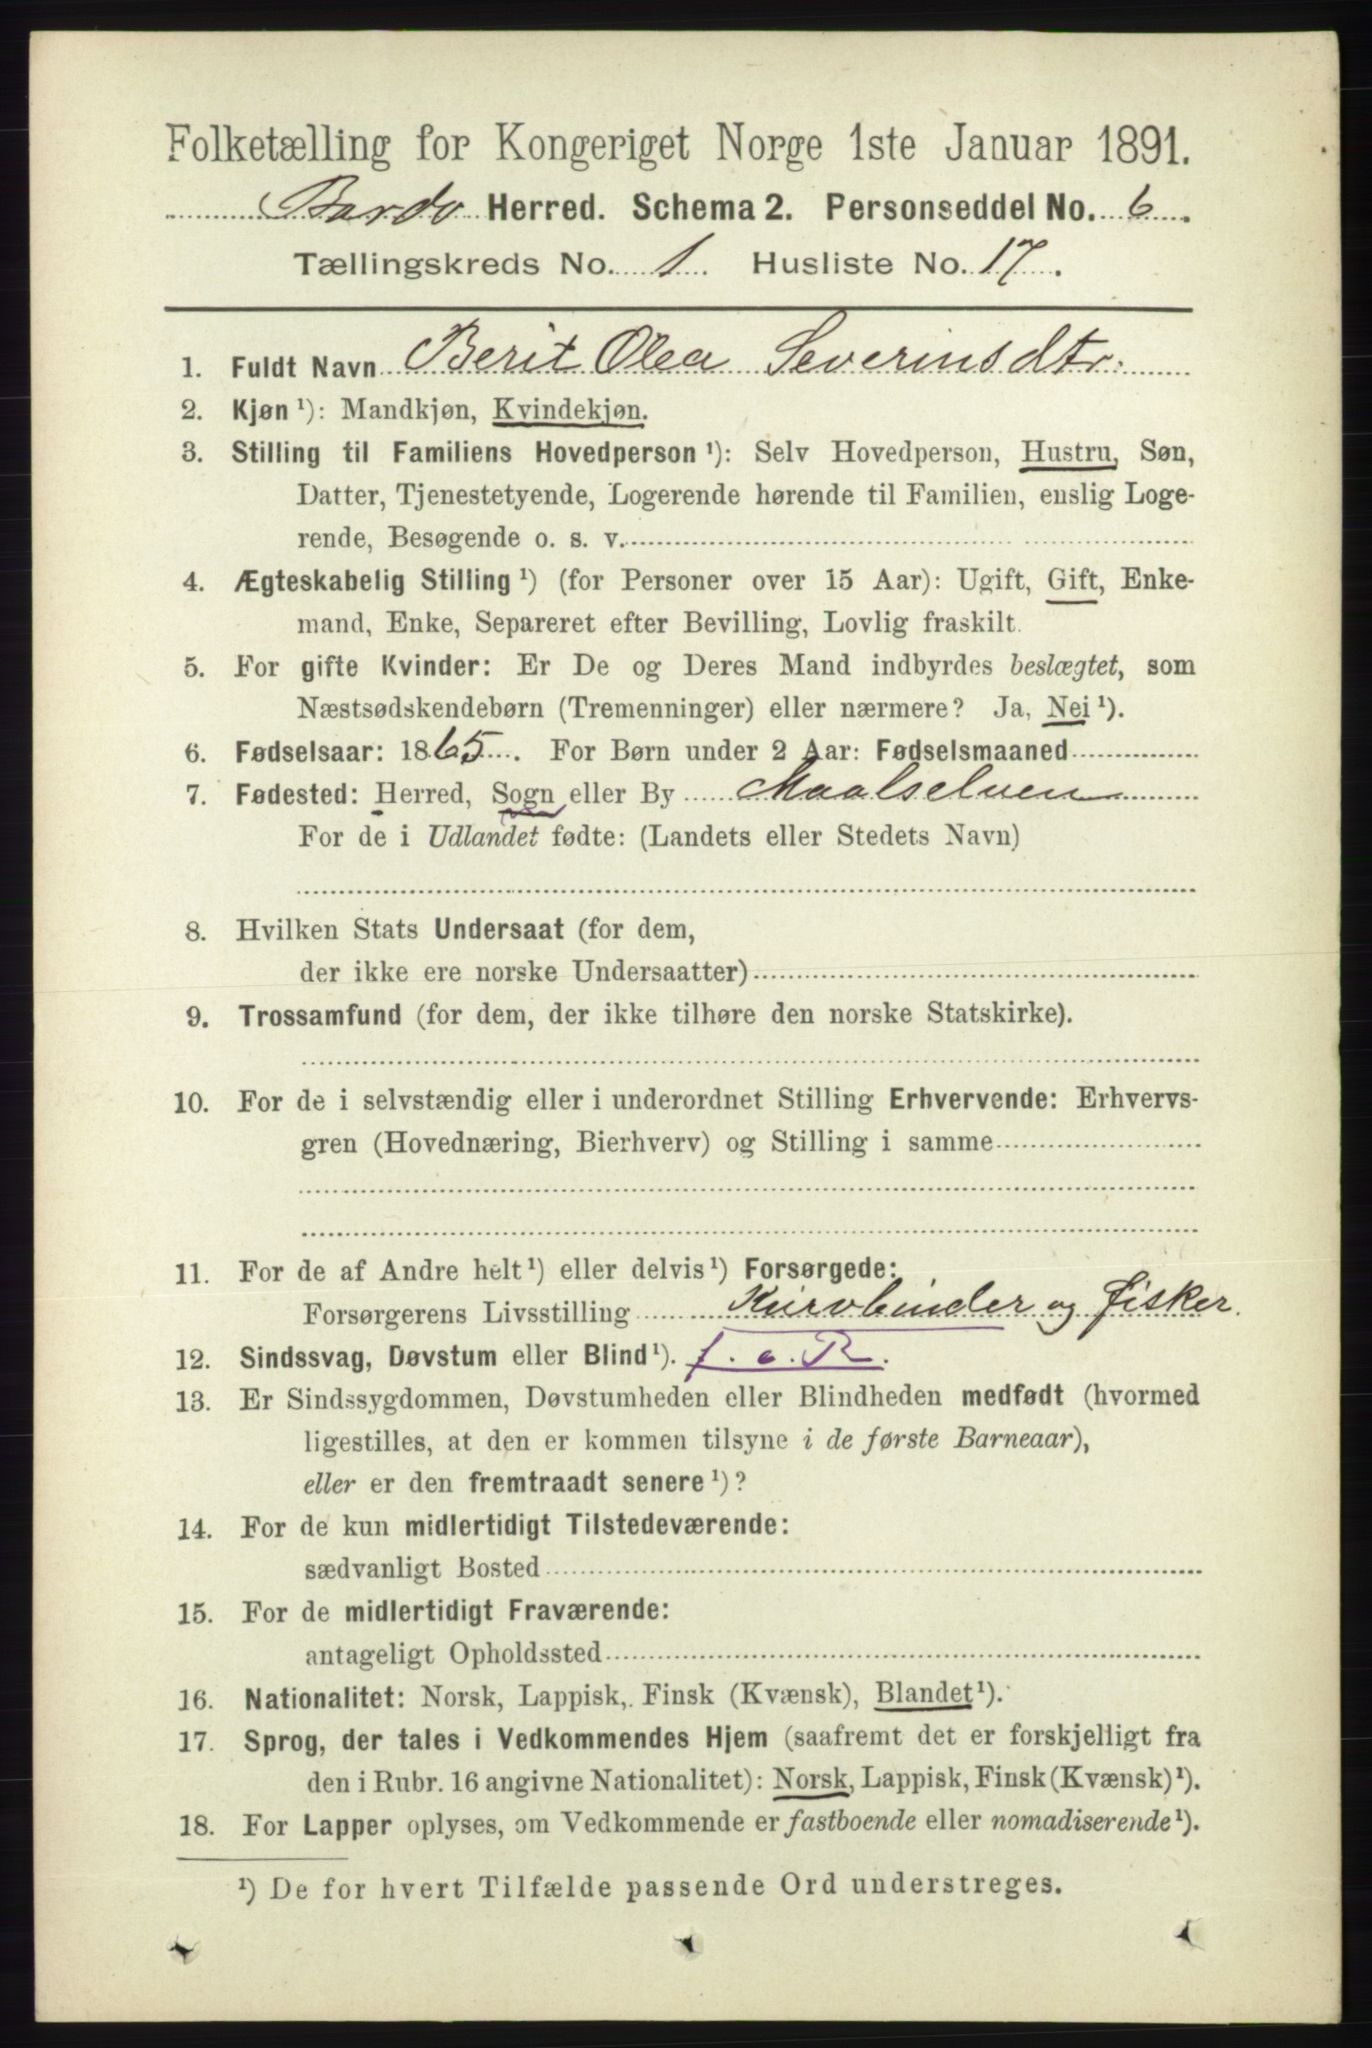 Folketælling for Kongeriget Norge 1ste Januar 1891.
Bardo Herred. Schema 2. Personseddel No. 6.
Tællingskreds No. 1 Husliste No. 17.
1. Fuldt Navn Berit Olea Severinsdtr.
2. Kjøn ¹): Mandkjøn, Kvindekjøn.
3. Stilling til Familiens Hovedperson ¹): Selv Hovedperson, Hustru, Søn,
Datter, Tjenestetyende, Logerende hørende til Familien, enslig Loge-
rende, Besøgende o. s. v.
4. Ægteskabelig Stilling ¹) (for Personer over 15 Aar): Ugift, Gift, Enke-
mand, Enke, Separeret efter Bevilling, Lovlig fraskilt.
5. For gifte Kvinder: Er De og Deres Mand indbyrdes beslægtet, som
Næstsødskendebørn (Tremenninger) eller nærmere? Ja, Nei ¹).
6. Fødselsaar: 1865. For Børn under 2 Aar: Fødselsmaaned
7. Fødested: Herred, Sogn eller By Maalselven
For de i Udlandet fødte: (Landets eller Stedets Navn)
8. Hvilken Stats Undersaat (for dem,
der ikke ere norske Undersaatter)
9. Trossamfund (for dem, der ikke tilhøre den norske Statskirke).
10. For de i selvstændig eller i underordnet Stilling Erhvervende: Erhvervs-
gren (Hovednæring, Bierhverv) og Stilling i samme
11. For de af Andre helt ¹) eller delvis ¹) Forsørgede:
Forsørgerens Livsstilling Kurvbinder og Fisker.
12. Sindssvag, Døvstum eller Blind ¹). f. o. R.
13. Er Sindssygdommen, Døvstumheden eller Blindheden medfødt (hvormed
ligestilles, at den er kommen tilsyne i de første Barneaar),
eller er den fremtraadt senere ¹)?
14. For de kun midlertidigt Tilstedeværende:
sædvanligt Bosted
15. For de midlertidigt Fraværende:
antageligt Opholdssted
16. Nationalitet: Norsk, Lappisk, Finsk (Kvænsk), Blandet ¹).
17. Sprog, der tales i Vedkommendes Hjem (saafremt det er forskjelligt fra
den i Rubr. 16 angivne Nationalitet): Norsk, Lappisk, Finsk (Kvænsk) ¹).
18. For Lapper oplyses, om Vedkommende er fastboende eller nomadiserende ¹).
¹) De for hvert Tilfælde passende Ord understreges.